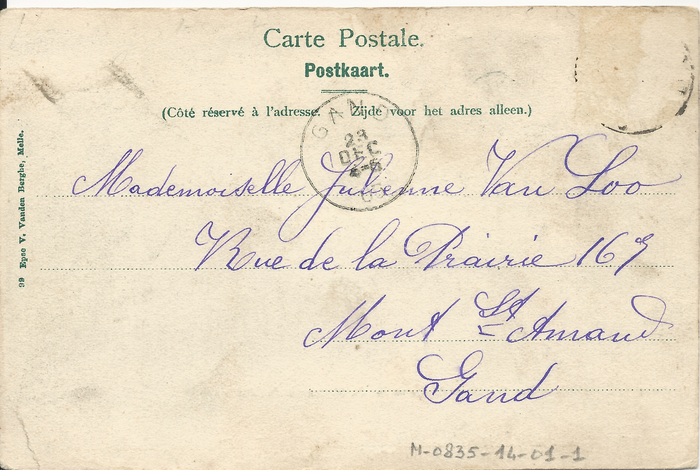 Carte Postale.
Postkaart.
(Côté réservé à l'adresse. Zijde voor het adres alleen.)
GAND
23
DEC
99 Epse V. Vanden Berghe, Melle.
Mademoiselle Julienne Van Loo
Rue de la Prairie 169
Mont St Amand
Gand
M-0835-14-01-1